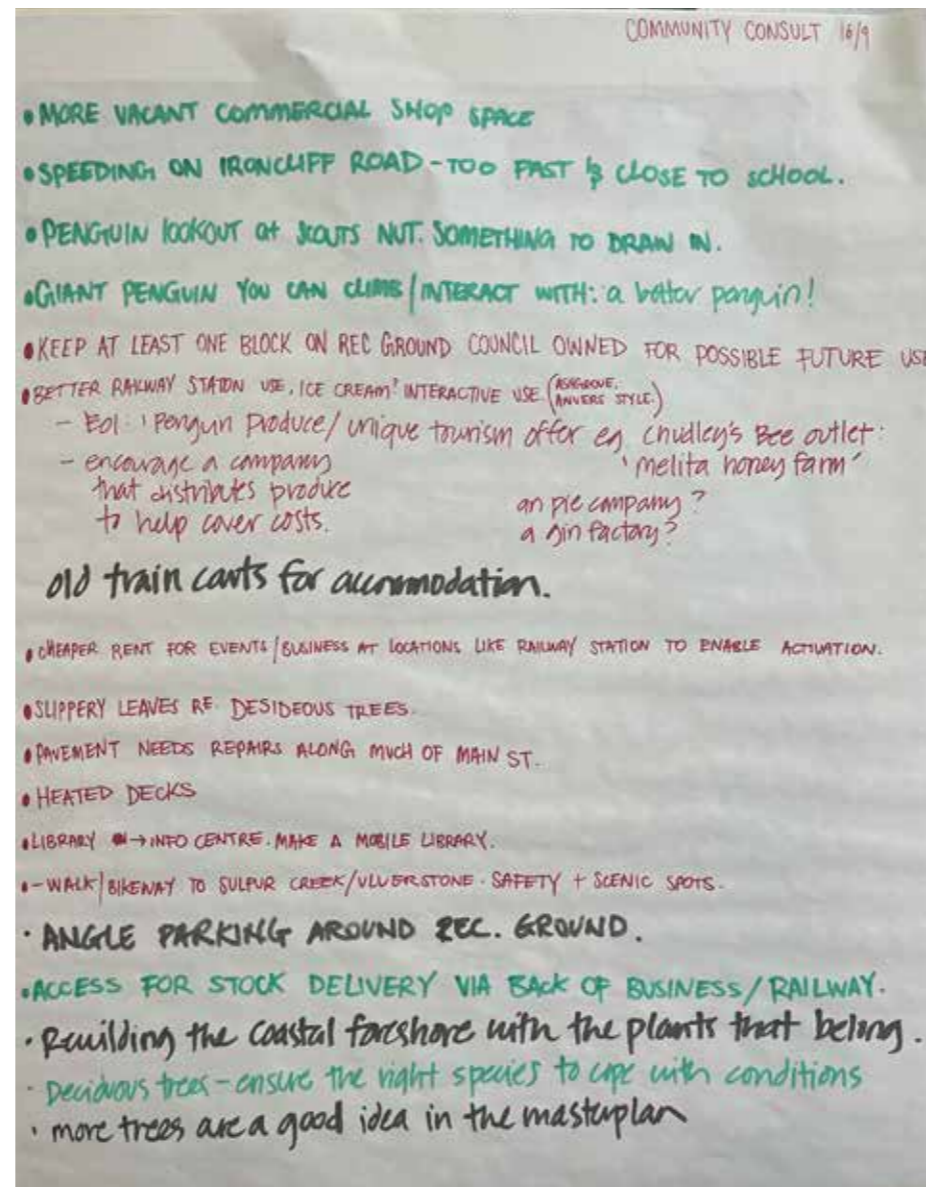 COMMUNITY CONSULT 16/9
• MORE VACANT COMMERCIAL SHOP SPACE
• SPEEDING ON IRONCLIFF ROAD - TOO FAST & CLOSE TO SCHOOL.
• PENGUIN LOOKOUT at SCOUTS HUT. SOMETHING TO DRAW IN.
• GIANT PENGUIN YOU CAN CLIMB/INTERACT WITH: a better penguin!
• KEEP AT LEAST ONE BLOCK ON REC GROUND COUNCIL OWNED FOR POSSIBLE FUTURE USE
• BETTER RAILWAY STATION USE, ICE CREAM? INTERACTIVE USE. (ASHGROVE, ANVERS STYLE.)
- EOI: 'Penguin Produce/unique tourism offer eg. Chudley's Bee outlet:
- encourage a company 'melita honey farm'
that distributes produce an pie company?
to help cover costs. a gin factory?
old train carts for accommodation.
• CHEAPER RENT FOR EVENTS/BUSINESS AT LOCATIONS LIKE RAILWAY STATION TO ENABLE ACTIVATION.
• SLIPPERY LEAVES RE. DESIDEOUS TREES.
• PAVEMENT NEEDS REPAIRS ALONG MUCH OF MAIN ST.
• HEATED DECKS
• LIBRARY → INFO CENTRE. MAKE A MOBILE LIBRARY.
• - WALK/BIKEWAY TO SULPUR CREEK/ULVERSTONE. SAFETY + SCENIC SPOTS.
• ANGLE PARKING AROUND REC. GROUND.
• ACCESS FOR STOCK DELIVERY VIA BACK OF BUSINESS/RAILWAY.
• Rewilding the coastal foreshore with the plants that belong.
• Deciduous trees - ensure the right species to cope with conditions
• more trees are a good idea in the masterplan